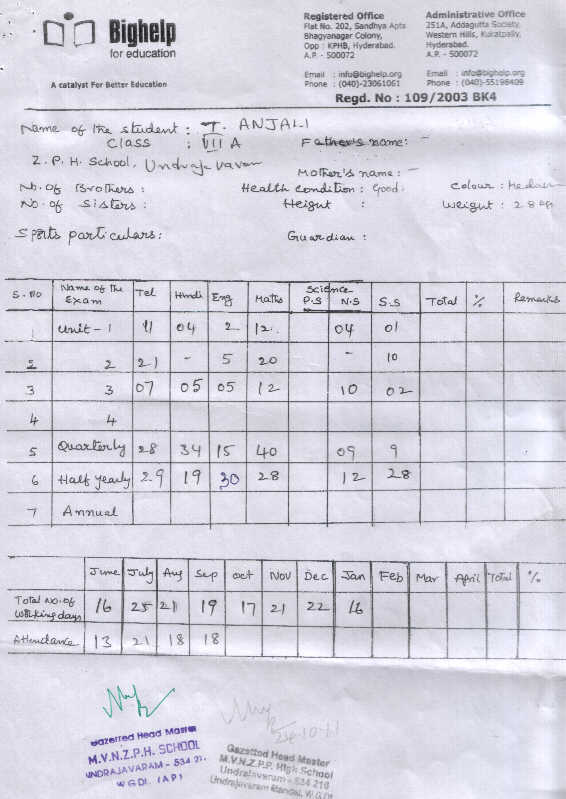 Bighelp
for education
A catalyst For Better Education
Registered Office
Flat No. 202, Sandhya Apts
Bhagyanagar Colony,
Opp : KPHB, Hyderabad.
A.P. - 500072
Email : info@bighelp.org
Phone : (040)-23061061
Administrative Office
251A, Addagutta Society,
Western Hills, Kukatpally,
Hyderabad.
A.P. - 500072
Email : info@bighelp.org
Phone : (040)-55198409
Regd. No : 109/2003 BK4
Name of the student : T. ANJALI
Class : VIII A Father's name: -
Z.P.H. School, Undrajavaram
Mother's name: -
No. of Brothers : Health Condition : Good. Colour :
No. of Sisters : Height : Weight : 28
Sports particulars: Guardian :
S.No Name of the Exam Tel Hindi Eng Maths Science P.S N.S S.S Total % Remarks
1 Unit - 1 11 04 2 12 04 01
2 2 21 - 5 20 - 10
3 3 07 05 05 12 10 02
4 4
5 Quarterly 28 34 15 40 09 9
6 Half yearly 29 19 30 28 12 28
7 Annual
June July Aug Sep Oct Nov Dec Jan Feb Mar April Total %
Total No. of Working days 16 25 21 19 17 21 22 16
Attendance 13 21 18 18
Gazetted Head Master
M.V.N.Z.P.H. SCHOOL
UNDRAJAVARAM - 534 21
W.GDI. (AP)
Gazetted Head Master
M.V.N.Z.P.P. High School
Undrajavaram - 534 216
Undrajavaram Mandal, W.G.Dt